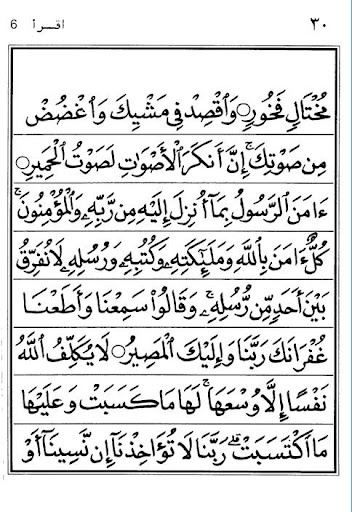 اقـرأ 6 ٣٠
مُخْتَالٍ فَخُورٍ ۝ وَٱقْصِدْ فِي مَشْيِكَ وَٱغْضُضْ
مِن صَوْتِكَ ۚ إِنَّ أَنكَرَ ٱلْأَصْوَٰتِ لَصَوْتُ ٱلْحَمِيرِ ۝
ءَامَنَ ٱلرَّسُولُ بِمَآ أُنزِلَ إِلَيْهِ مِن رَّبِّهِۦ وَٱلْمُؤْمِنُونَ ۚ
كُلٌّ ءَامَنَ بِٱللَّهِ وَمَلَٰٓئِكَتِهِۦ وَكُتُبِهِۦ وَرُسُلِهِۦ لَا نُفَرِّقُ
بَيْنَ أَحَدٍ مِّن رُّسُلِهِۦ ۚ وَقَالُوا۟ سَمِعْنَا وَأَطَعْنَا
غُفْرَانَكَ رَبَّنَا وَإِلَيْكَ ٱلْمَصِيرُ ۝ لَا يُكَلِّفُ ٱللَّهُ
نَفْسًا إِلَّا وُسْعَهَا ۚ لَهَا مَا كَسَبَتْ وَعَلَيْهَا
مَا ٱكْتَسَبَتْ ۗ رَبَّنَا لَا تُؤَاخِذْنَآ إِن نَّسِينَآ أَوْ